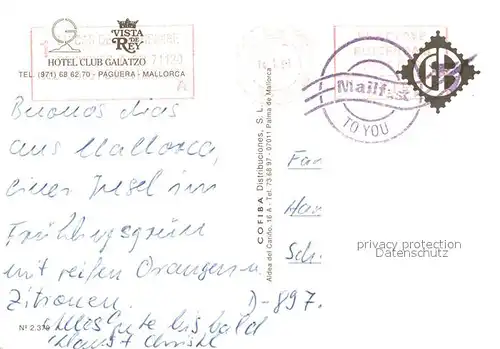 VISTA
DE
REY
HOTEL CLUB GALATZO
TEL. (971) 68 62 70 - PAGUERA - MALLORCA
Mailfast
TO YOU
Buenos dias
aus Mallorca,
einer Insel im
Frühlingsgrün
mit reifen Orangen u.
Zitronen.
Alles Gute bis bald
Klaus + Christl
Nº 2.379
COFIBA Distribuciones, S. L.
Aldea del Cariño, 16 A - Tel. 73 68 97 - 07011 Palma de Mallorca
Fam
Han
Sch.
D-897.
privacy protection
Datenschutz